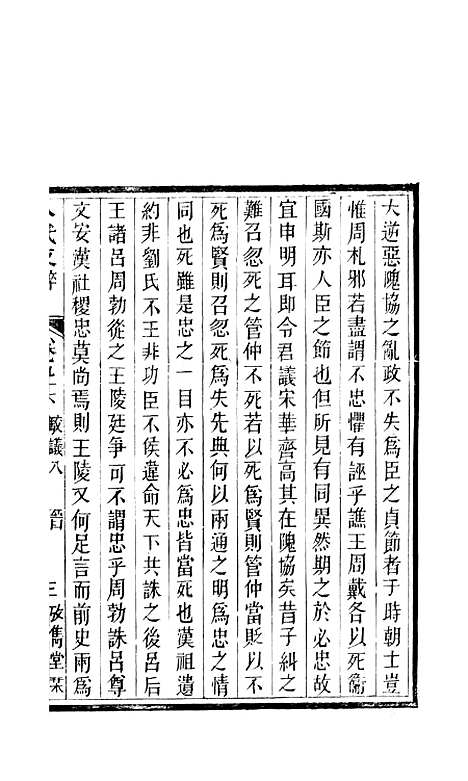 大逆惡隗協之亂政不失爲臣之貞節者于時朝士豈
惟周札邪若盡謂不忠懼有誣乎譙王周戴各以死衞
國斯亦人臣之節也但所見有同異然期之於必忠故
宜申明耳即令君議宋華齊高其在隗協矣昔子糾之
難召忽死之管仲不死若以死爲賢則管仲當貶以不
死爲賢則召忽死爲失先典何以兩通之明爲忠之情
同也死雖是忠之一目亦不必爲忠皆當死也漢祖遺
約非劉氏不王非功臣不侯違命天下共誅之後呂后
王諸呂周勃從之王陵廷爭可不謂忠乎周勃誅呂尊
文安漢社稷忠莫尚焉則王陵又何足言而前史兩爲
駮議八 晉 三